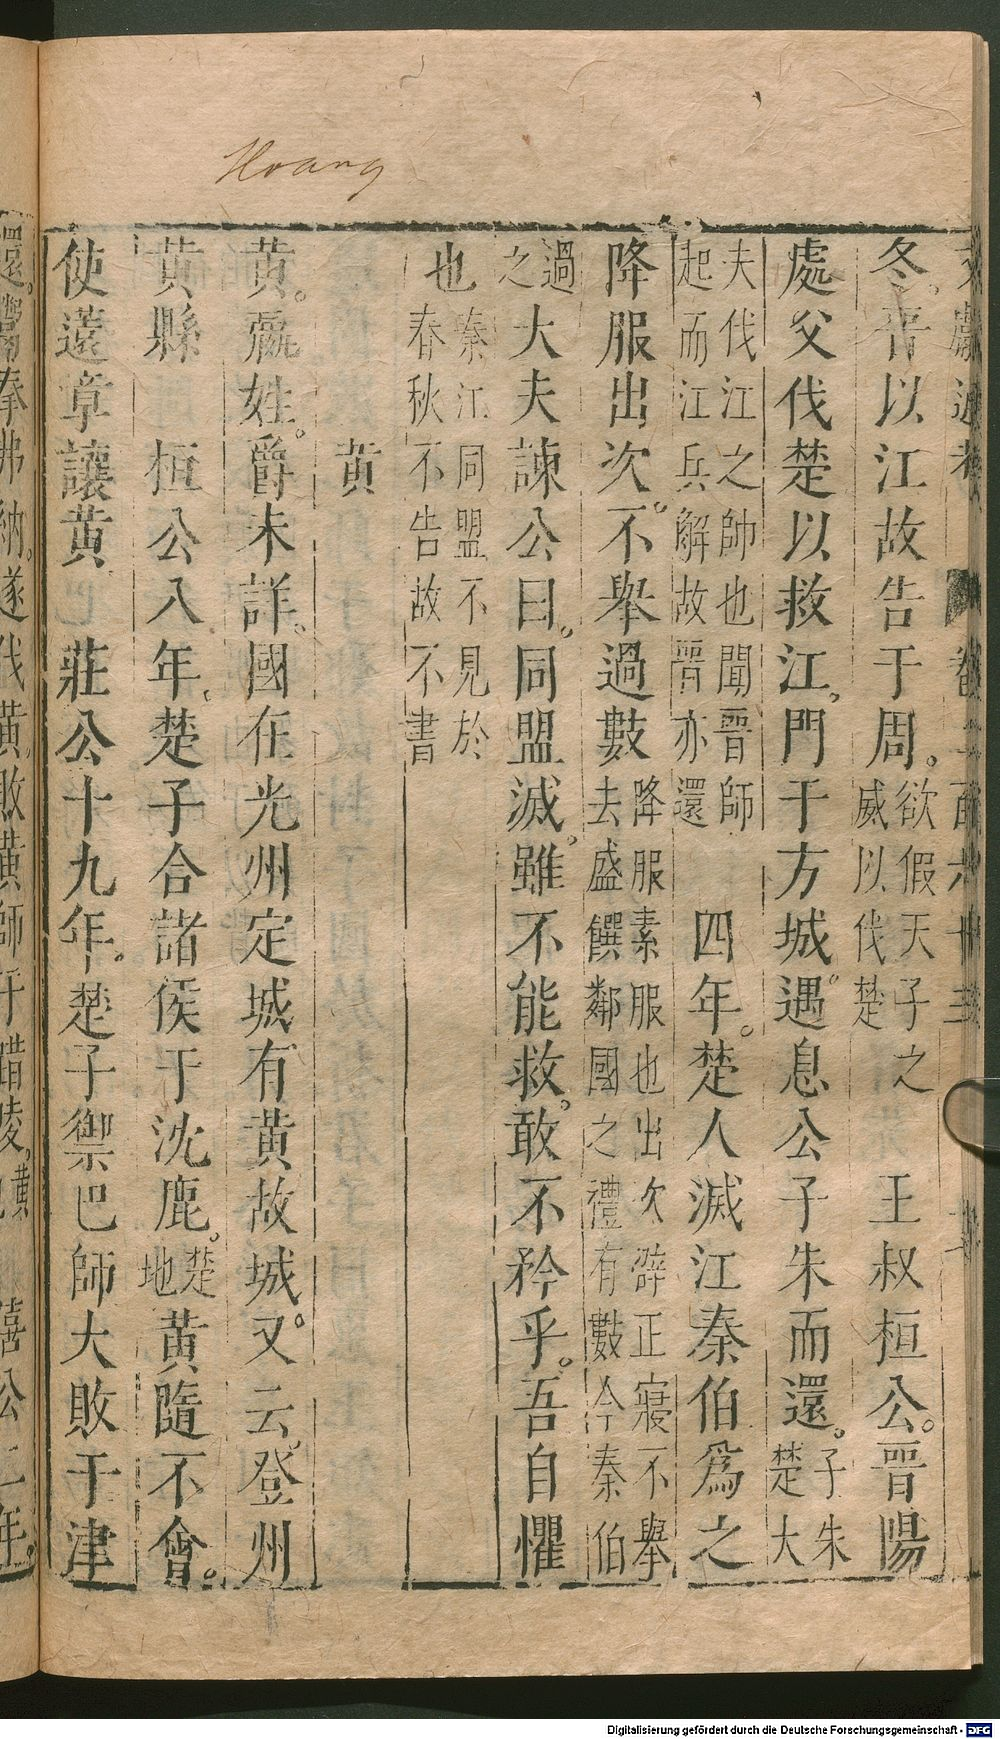 Hoang
冬。晉以江故告于周。欲假天子之威以伐楚 王叔桓公。晉陽
處父伐楚以救江。門于方城。遇息公子朱而還。子朱楚大
夫伐江之帥也聞晉師起而江兵解故晉亦還 四年。楚人滅江秦伯爲之
降服出次。不舉過數降服素服也出次辟正寢不舉去盛饌鄰國之禮有數今秦伯
過之大夫諫公曰。同盟滅。雖不能救。敢不矜乎。吾自懼
也秦江同盟不見於春秋不告故不書
黄
黄。嬴姓。爵未詳。國在光州定城有黄故城。又云。登州
黄縣 桓公八年。楚子合諸侯于沈鹿。楚地黄隨不會。
使薳章讓黄 莊公十九年。楚子禦巴師大敗于津
還。鬻拳弗納。遂伐黄敗黄師于踖陵。黄
Digitalisierung gefördert durch die Deutsche Forschungsgemeinschaft - DFG